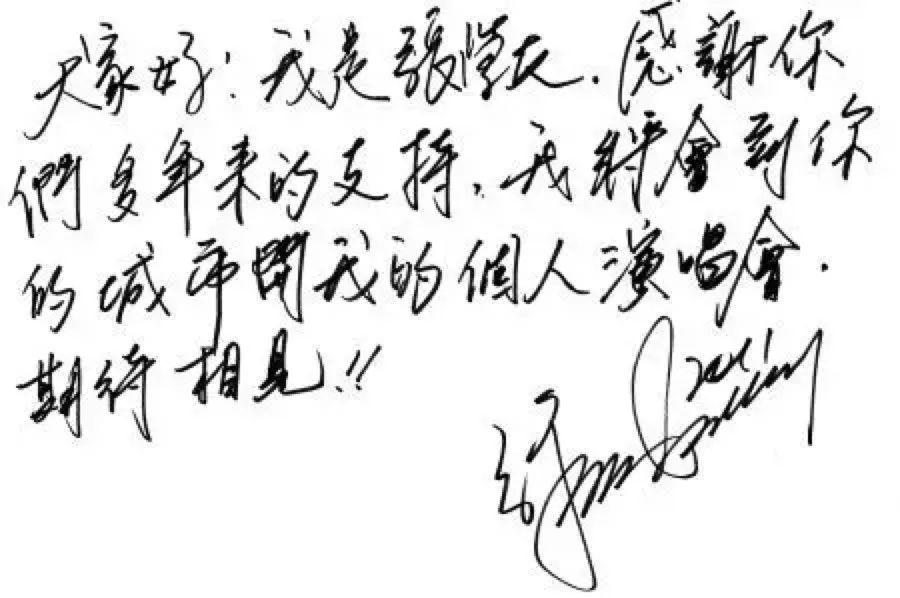 大家好！我是張信哲．感謝你
們多年来的支持．我將會到你
的城市開我的個人演唱會．
期待相見！！